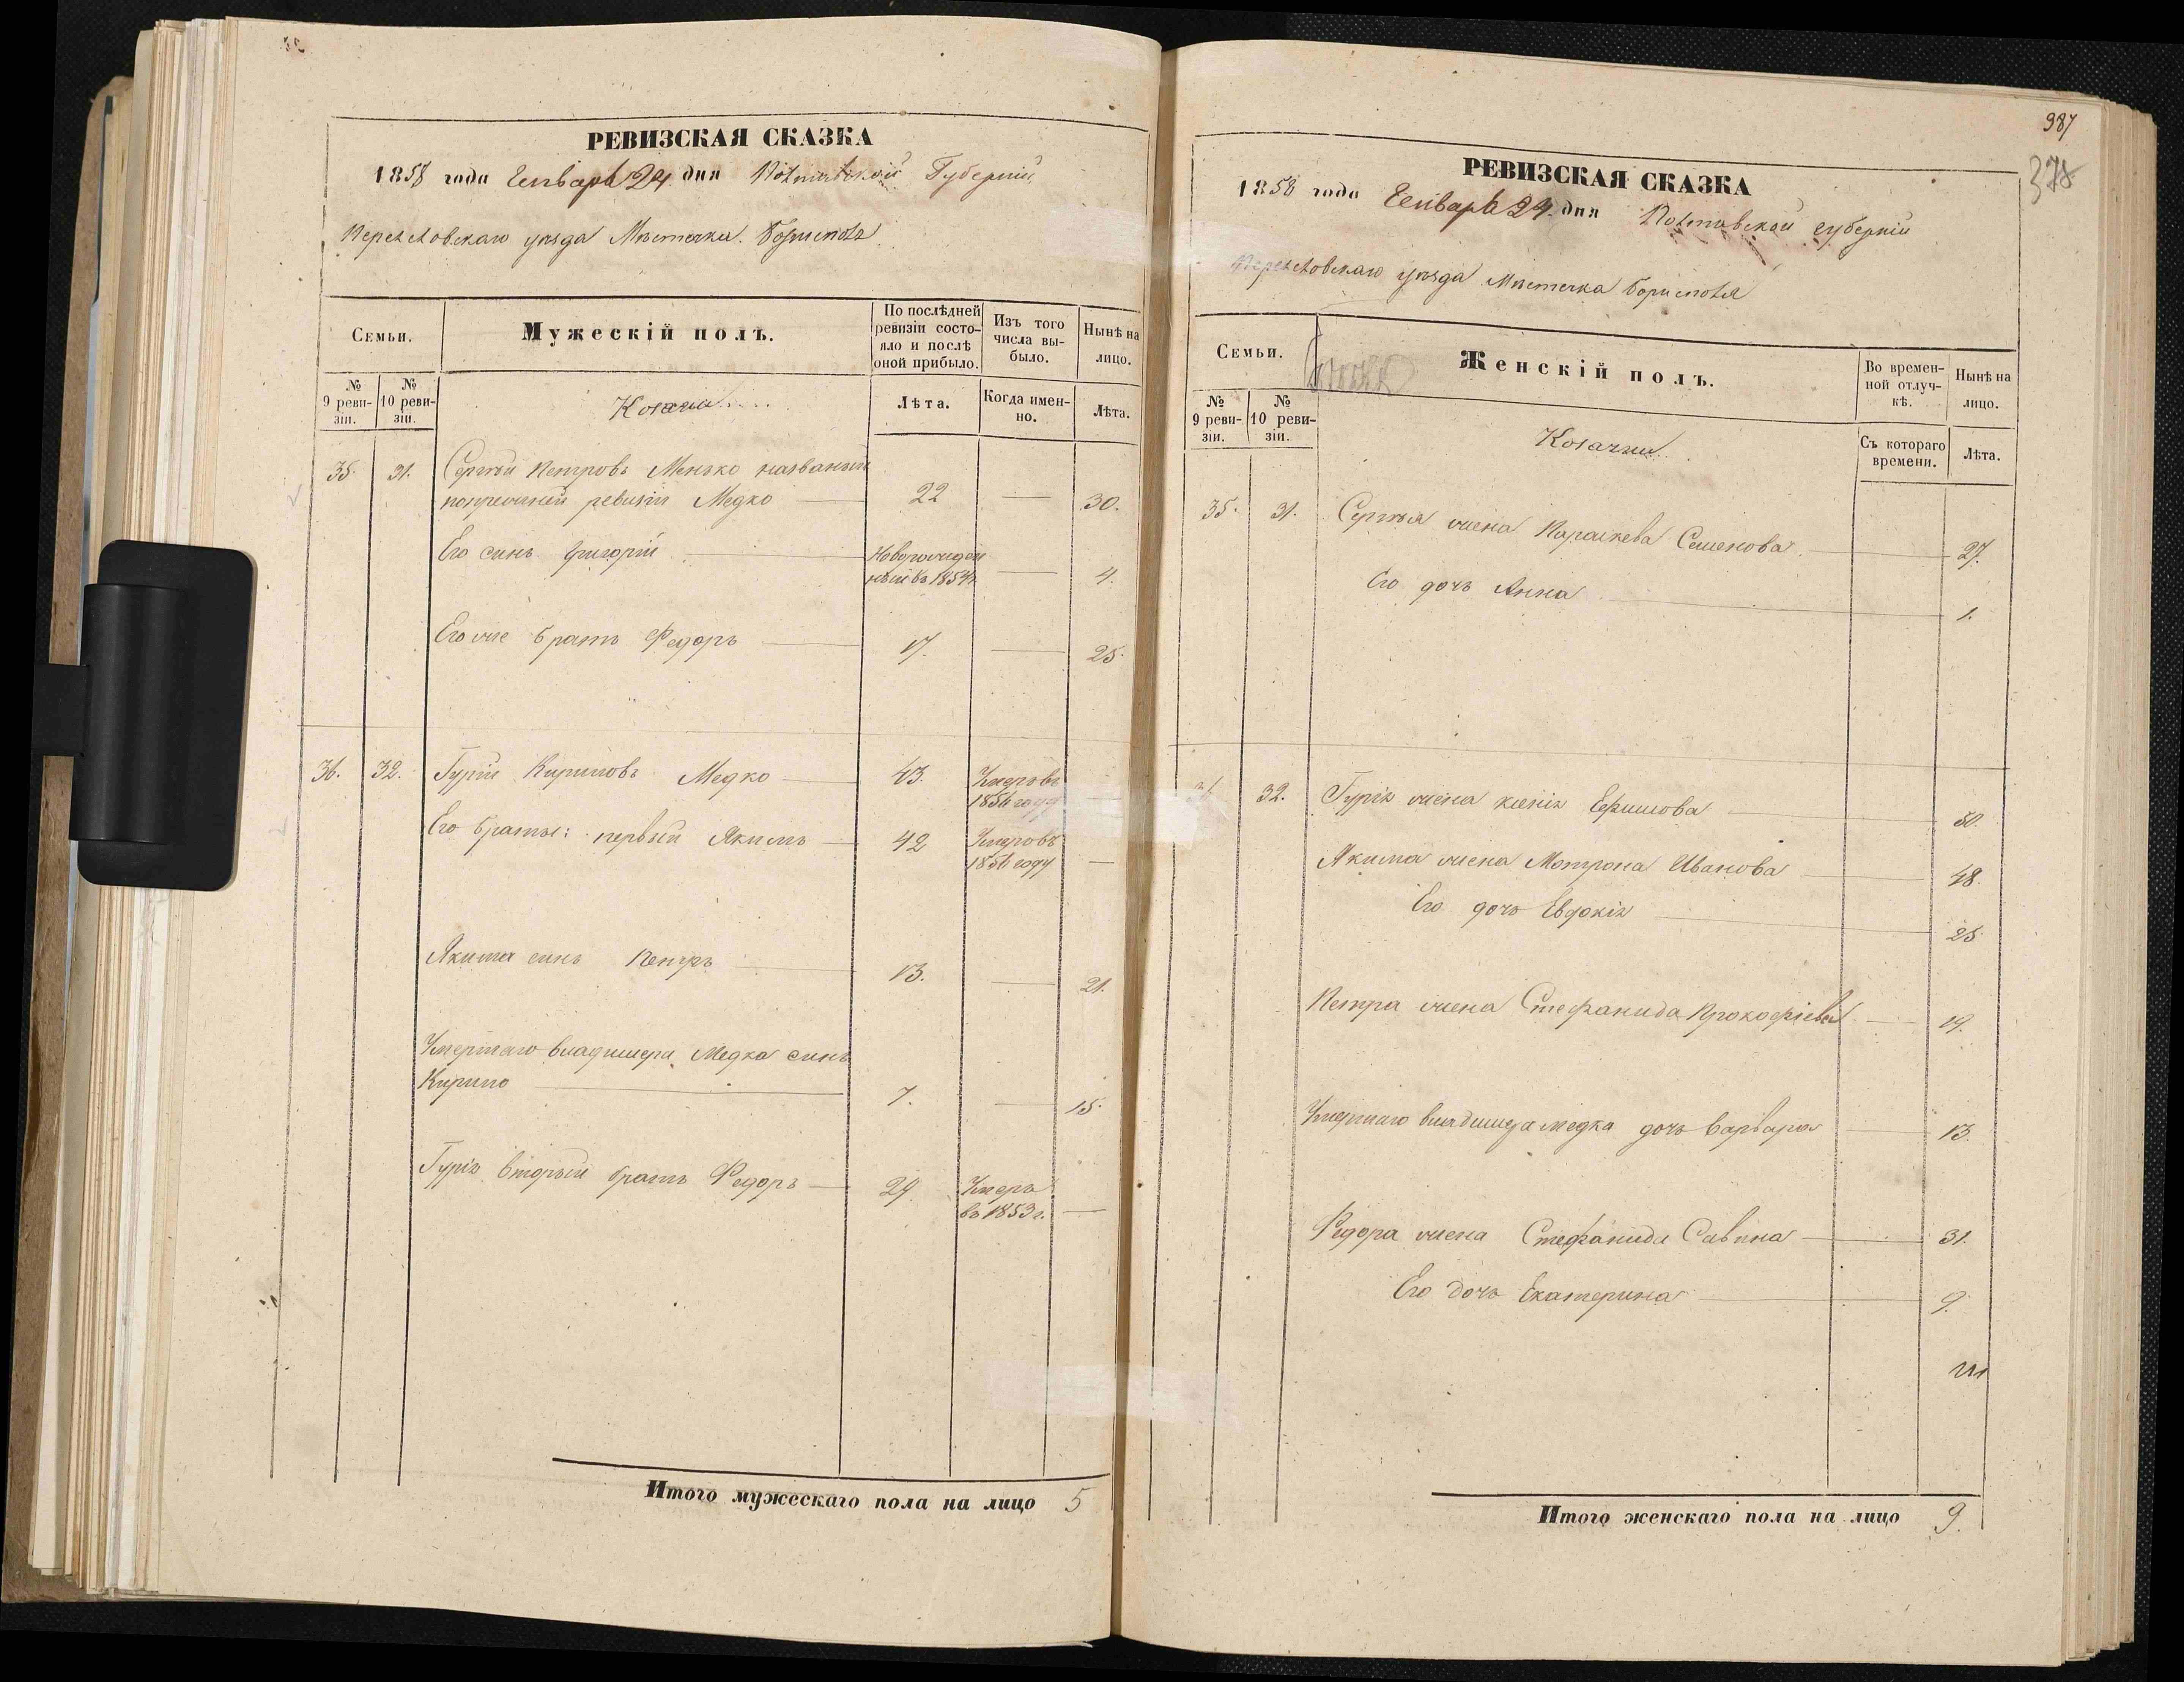 РЕВИЗСКАЯ СКАЗКА
1858 года Генваря 24 дня Полтавской Губерніи
Переяславскаго уѣзда Мѣстечка Борисполя
Семьи.
Мужескій полъ.
По послѣдней ревизіи состояло и послѣ оной прибыло.
Изъ того числа выбыло.
Нынѣ на лицо.
№ 9 ревизіи.
№ 10 ревизіи.
Козаки
Лѣта.
Когда именно.
Лѣта.
35. 31. Сергѣй Петровъ Менько названый
попрежней ревизіи Медко 22 — 30.
Его синъ Григорій Новорожден
ный въ 1854 г. — 4.
Его же братъ Федоръ 17. — 25.
36. 32. Гурій Кириловъ Медко 43. Умеръ въ
1856 году
Его братья: первый Якимъ 42 Умеръ въ
1856 году —
Якима синъ Петръ 13. — 21.
Умершаго Владимера Медка синъ
Кирило 7. — 15.
Гурія вторый братъ Федоръ 29. Умеръ
въ 1853 г. —
Итого мужескаго пола на лицо 5
987
378
РЕВИЗСКАЯ СКАЗКА
1858 года Генваря 24. дня Полтавской губерніи
Переяславскаго уѣзда Мѣстечка Борисполя
Семьи.
Женскій полъ.
Во временной отлучкѣ.
Нынѣ на лицо.
№ 9 ревизіи.
№ 10 ревизіи.
Козачки
Съ котораго времени.
Лѣта.
35. 31. Сергѣя жена Параскева Семенова 27.
Его дочь Анна 1.
32. Гурія жена Ксенія Ефимова 50.
Якима жена Мотрона Иванова 48.
Его дочь Евдокія 25
Петра жена Стефанида Прокофіева 19.
Умершаго Владимера Медка дочь Варвара 13.
Федора жена Стефанида Савина 31.
Его дочь Екатерина 9.
Итого женскаго пола на лицо 9.